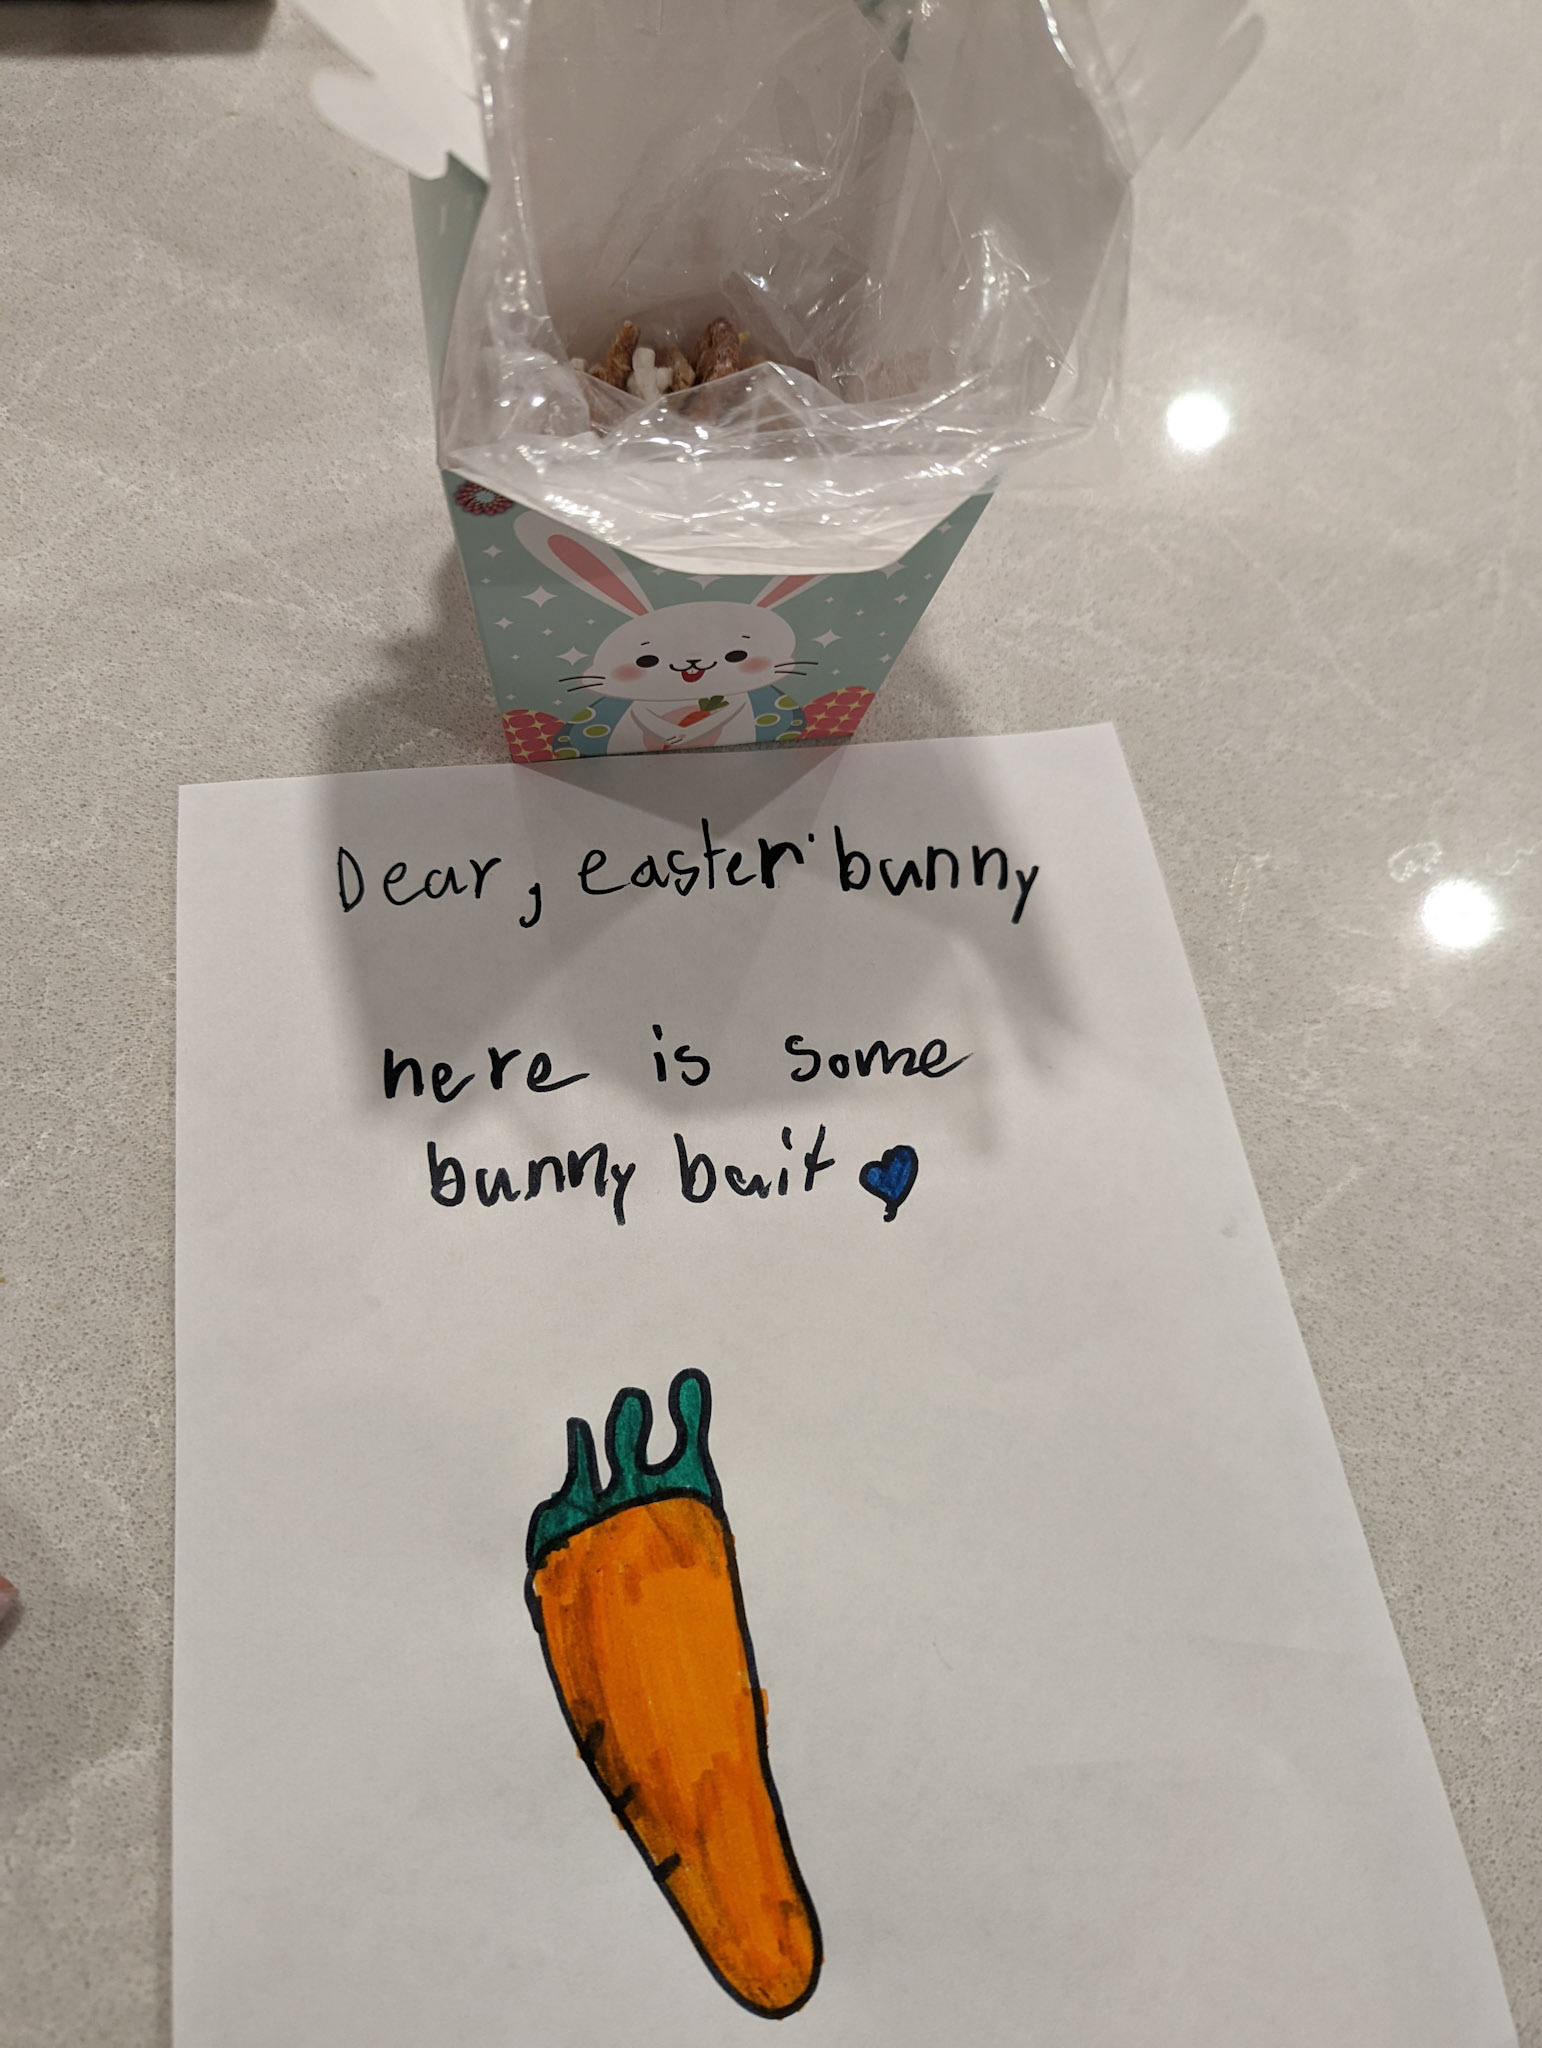 Dear, easter bunny
here is some
bunny bait